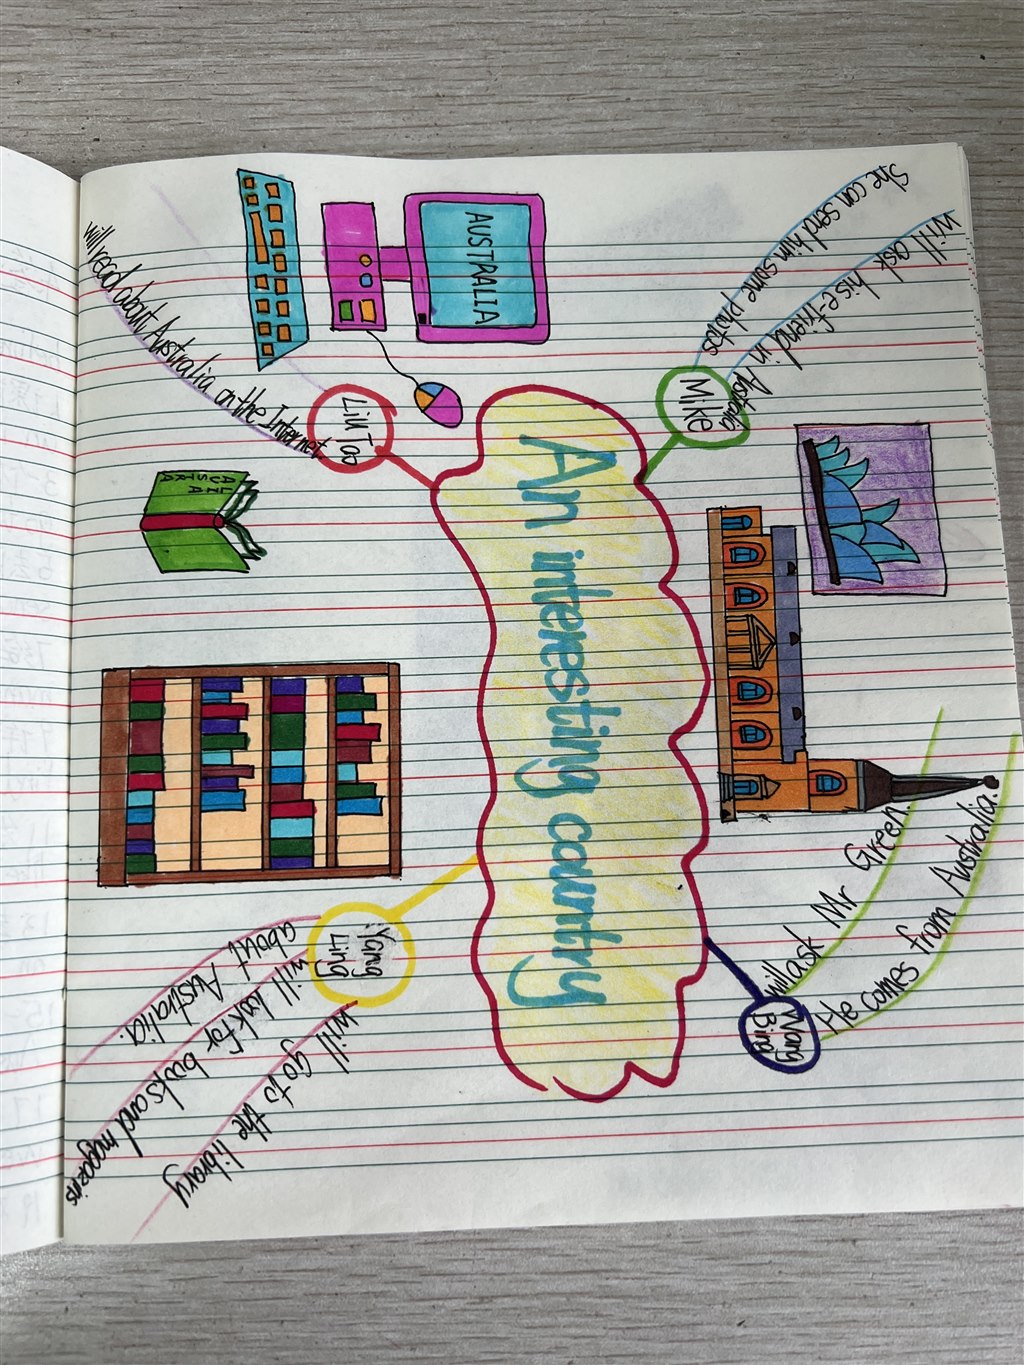 An interesting country
Mike
She can send him some photos
will ask his e-friend in Australia
Liu Tao
will read about Australia on the Internet.
AUSTRALIA
AUSTRA
LIA
Yang
Ling
will go to the library
will look for books and magazins
about Australia.
Wang
Bing
will ask Mr Green.
He comes from Australia.